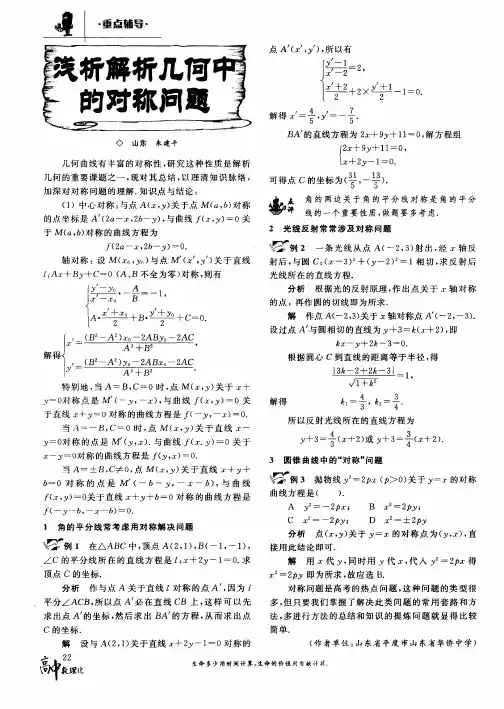 ·重点辅导·
浅析解析几何中
的对称问题
◇ 山东 朱建平
几何曲线有丰富的对称性,研究这种性质是解析
几何的重要课题之一,现对其总结,以理清知识脉络,
加深对对称问题的理解.知识点与结论:
(1) 中心对称:与点 A(x,y)关于点 M(a,b)对称
的点坐标是 A′(2a-x,2b-y),与曲线 f(x,y)=0 关
于 M(a,b)对称的曲线方程为
f(2a-x,2b-y)=0.
轴对称:设 M(x₀,y₀)与点 M′(x′,y′)关于直线
l:Ax+By+C=0 (A、B 不全为零)对称,则有
{ (y′-y₀)/(x′-x₀)·(-A/B)=-1,
A·(x′+x₀)/2+B·(y′+y₀)/2+C=0.
解得{ x′=((B²-A²)x₀-2ABy₀-2AC)/(A²+B²),
y′=((B²-A²)y₀-2ABx₀-2AC)/(A²+B²).
特别地,当 A=B,C=0 时,点 M(x,y)关于 x+
y=0对称点是 M′(-y,-x),与曲线 f(x,y)=0 关
于直线 x+y=0 对称的曲线是 f(-y,-x)=0.
当 A=-B,C=0 时,点 M(x,y)关于直线 x-
y=0对称的点是 M′(y,x).与曲线 f(x,y)=0 关于
x-y=0对称的曲线方程是 f(y,x)=0.
当 A=±B,C≠0,点 M(x,y)关于直线 x+y+
b=0 对称的点是 M′(-b-y,-x-b),与曲线
f(x,y)=0关于直线 x+y+b=0 对称的曲线方程是
f(-y-b,-x-b)=0.
1 角的平分线常考虑用对称解决问题
例 1 在△ABC 中,顶点 A(2,1),B(-1,-1),
∠C 的平分线所在的直线方程是 l:x+2y-1=0.求
顶点 C 的坐标.
分析 作与点 A 关于直线 l 对称的点 A′,因为 l
平分∠ACB,所以点 A′必在直线 CB 上,这样可以先
求出点 A′的坐标,然后求出 BA′的方程,从而求出点
C 的坐标.
解 设与 A(2,1)关于直线 x+2y-1=0 对称的
点 A′(x′,y′),所以有
{ (y′-1)/(x′-2)=2,
(x′+2)/2+2×(y′+1)/2-1=0.
解得 x′=4/5,y′=-7/5.
BA′的直线方程为 2x+9y+11=0,解方程组
{ 2x+9y+11=0,
x+2y-1=0.
可得点 C 的坐标为(31/5,-13/5).
点评 角的两边关于角的平分线对称是角的平分
线的一个重要性质,做题要多考虑.
2 光线反射常常涉及对称问题
例 2 一条光线从点 A(-2,3)射出,经 x 轴反
射后,与圆 C:(x-3)²+(y-2)²=1 相切,求反射后
光线所在的直线方程.
分析 根据光的反射原理,作出点关于 x 轴对称
的点,再作圆的切线即为所求.
解 作点 A(-2,3)关于 x 轴对称点 A′(-2,-3).
设过点 A′与圆相切的直线为 y+3=k(x+2),即
kx-y+2k-3=0.
根据圆心 C 到直线的距离等于半径,得
|3k-2+2k-3|/√(1+k²)=1,
解得 k₁=4/3,k₂=3/4.
所以反射光线所在的直线方程为
y+3=4/3(x+2)或 y+3=3/4(x+2).
3 圆锥曲线中的“对称”问题
例 3 抛物线 y²=2px (p>0)关于 y=x 的对称
曲线方程是( ).
A y²=-2px; B x²=2py;
C x²=-2py; D x²=±2py
分析 点(x,y)关于 y=x 的对称点为(y,x),直
接用此结论即可.
解 用 x 代 y,同时用 y 代 x,代入 y²=2px 得
x²=2py 即为所求,故应选 B.
对称问题是高考的热点问题,这种问题的类型很
多,但只要我们掌握了解决此类问题的常用套路和方
法,多进行方法的总结和知识的提炼问题就显得比较
简单.
(作者单位:山东省平度市山东省华侨中学)
22
高中数理化
生命多少用时间计算,生命的价值用贡献计算.